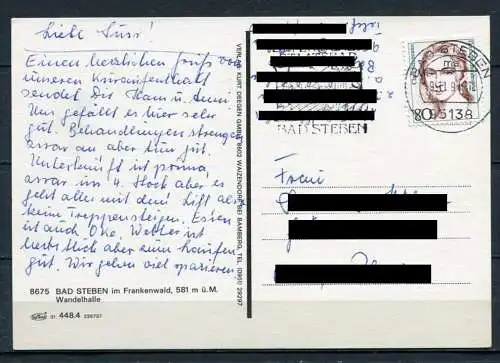 Liebe Susi!
Einen herzlichen Gruß von
unserem Kuraufenthalt
sendet Dir Hans u. Anni.
Uns gefällt es hier sehr
gut. Behandlungen strengen
zwar an aber tun gut.
Unterkunft ist prima
zwar im 4. Stock aber es
geht alles mit dem Lift also
kein Treppensteigen. Essen
ist auch Oke. Wetter ist
herbstlich aber zum laufen
gut. Wir gehen viel spazieren.
8675 BAD STEBEN im Frankenwald, 581 m ü.M.
Wandelhalle
31 448.4
VERLAG KURT DEEGEN GMBH, 8602 WAIZENDORF BEI BAMBERG, TEL. (0951) 29297
BAD STEBEN
STEBEN
80
95138
Frau